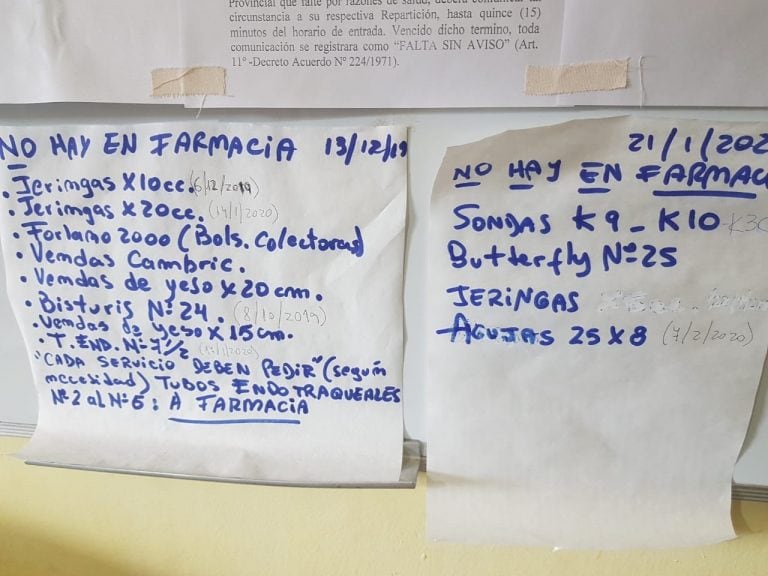 Provincial que falte por razones de salud, deberá comunicar tal
circunstancia a su respectiva Repartición, hasta quince (15)
minutos del horario de entrada. Vencido dicho termino, toda
comunicación se registrara como “FALTA SIN AVISO” (Art.
11º -Decreto Acuerdo Nº 224/1971).
NO HAY EN FARMACIA 13/12/19
. Jeringas X10cc. (6/12/2019)
. Jeringas X 20cc. (14/1/2020)
. Forlano 2000 (Bols. Colectoras)
. Vendas Cambric.
. Vendas de yeso X 20 cm.
. Bisturis Nº 24. (8/10/2019)
. Vendas de yeso X 15cm.
. T. END. Nº 7 1/2 (17/1/2020)
"CADA SERVICIO DEBEN PEDIR" (según
necesidad) TUBOS ENDOTRAQUEALES
Nº 2 al Nº 6: A FARMACIA
21/1/202
NO HAY EN FARMAC
SONDAS K9 - K10 -K30
Butterfly Nº 25
JERINGAS
AGUJAS 25 X 8 (7/2/2020)